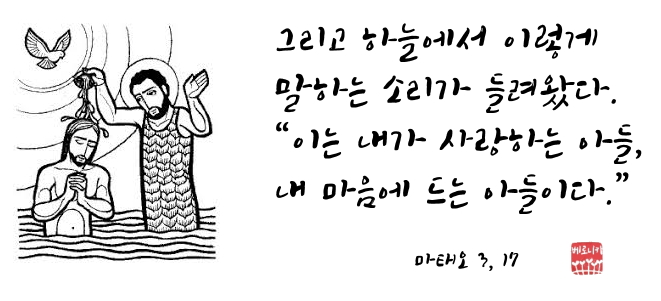 그리고 하늘에서 이렇게
말하는 소리가 들려왔다.
“이는 내가 사랑하는 아들,
내 마음에 드는 아들이다.”
마태오 3, 17
베로니카